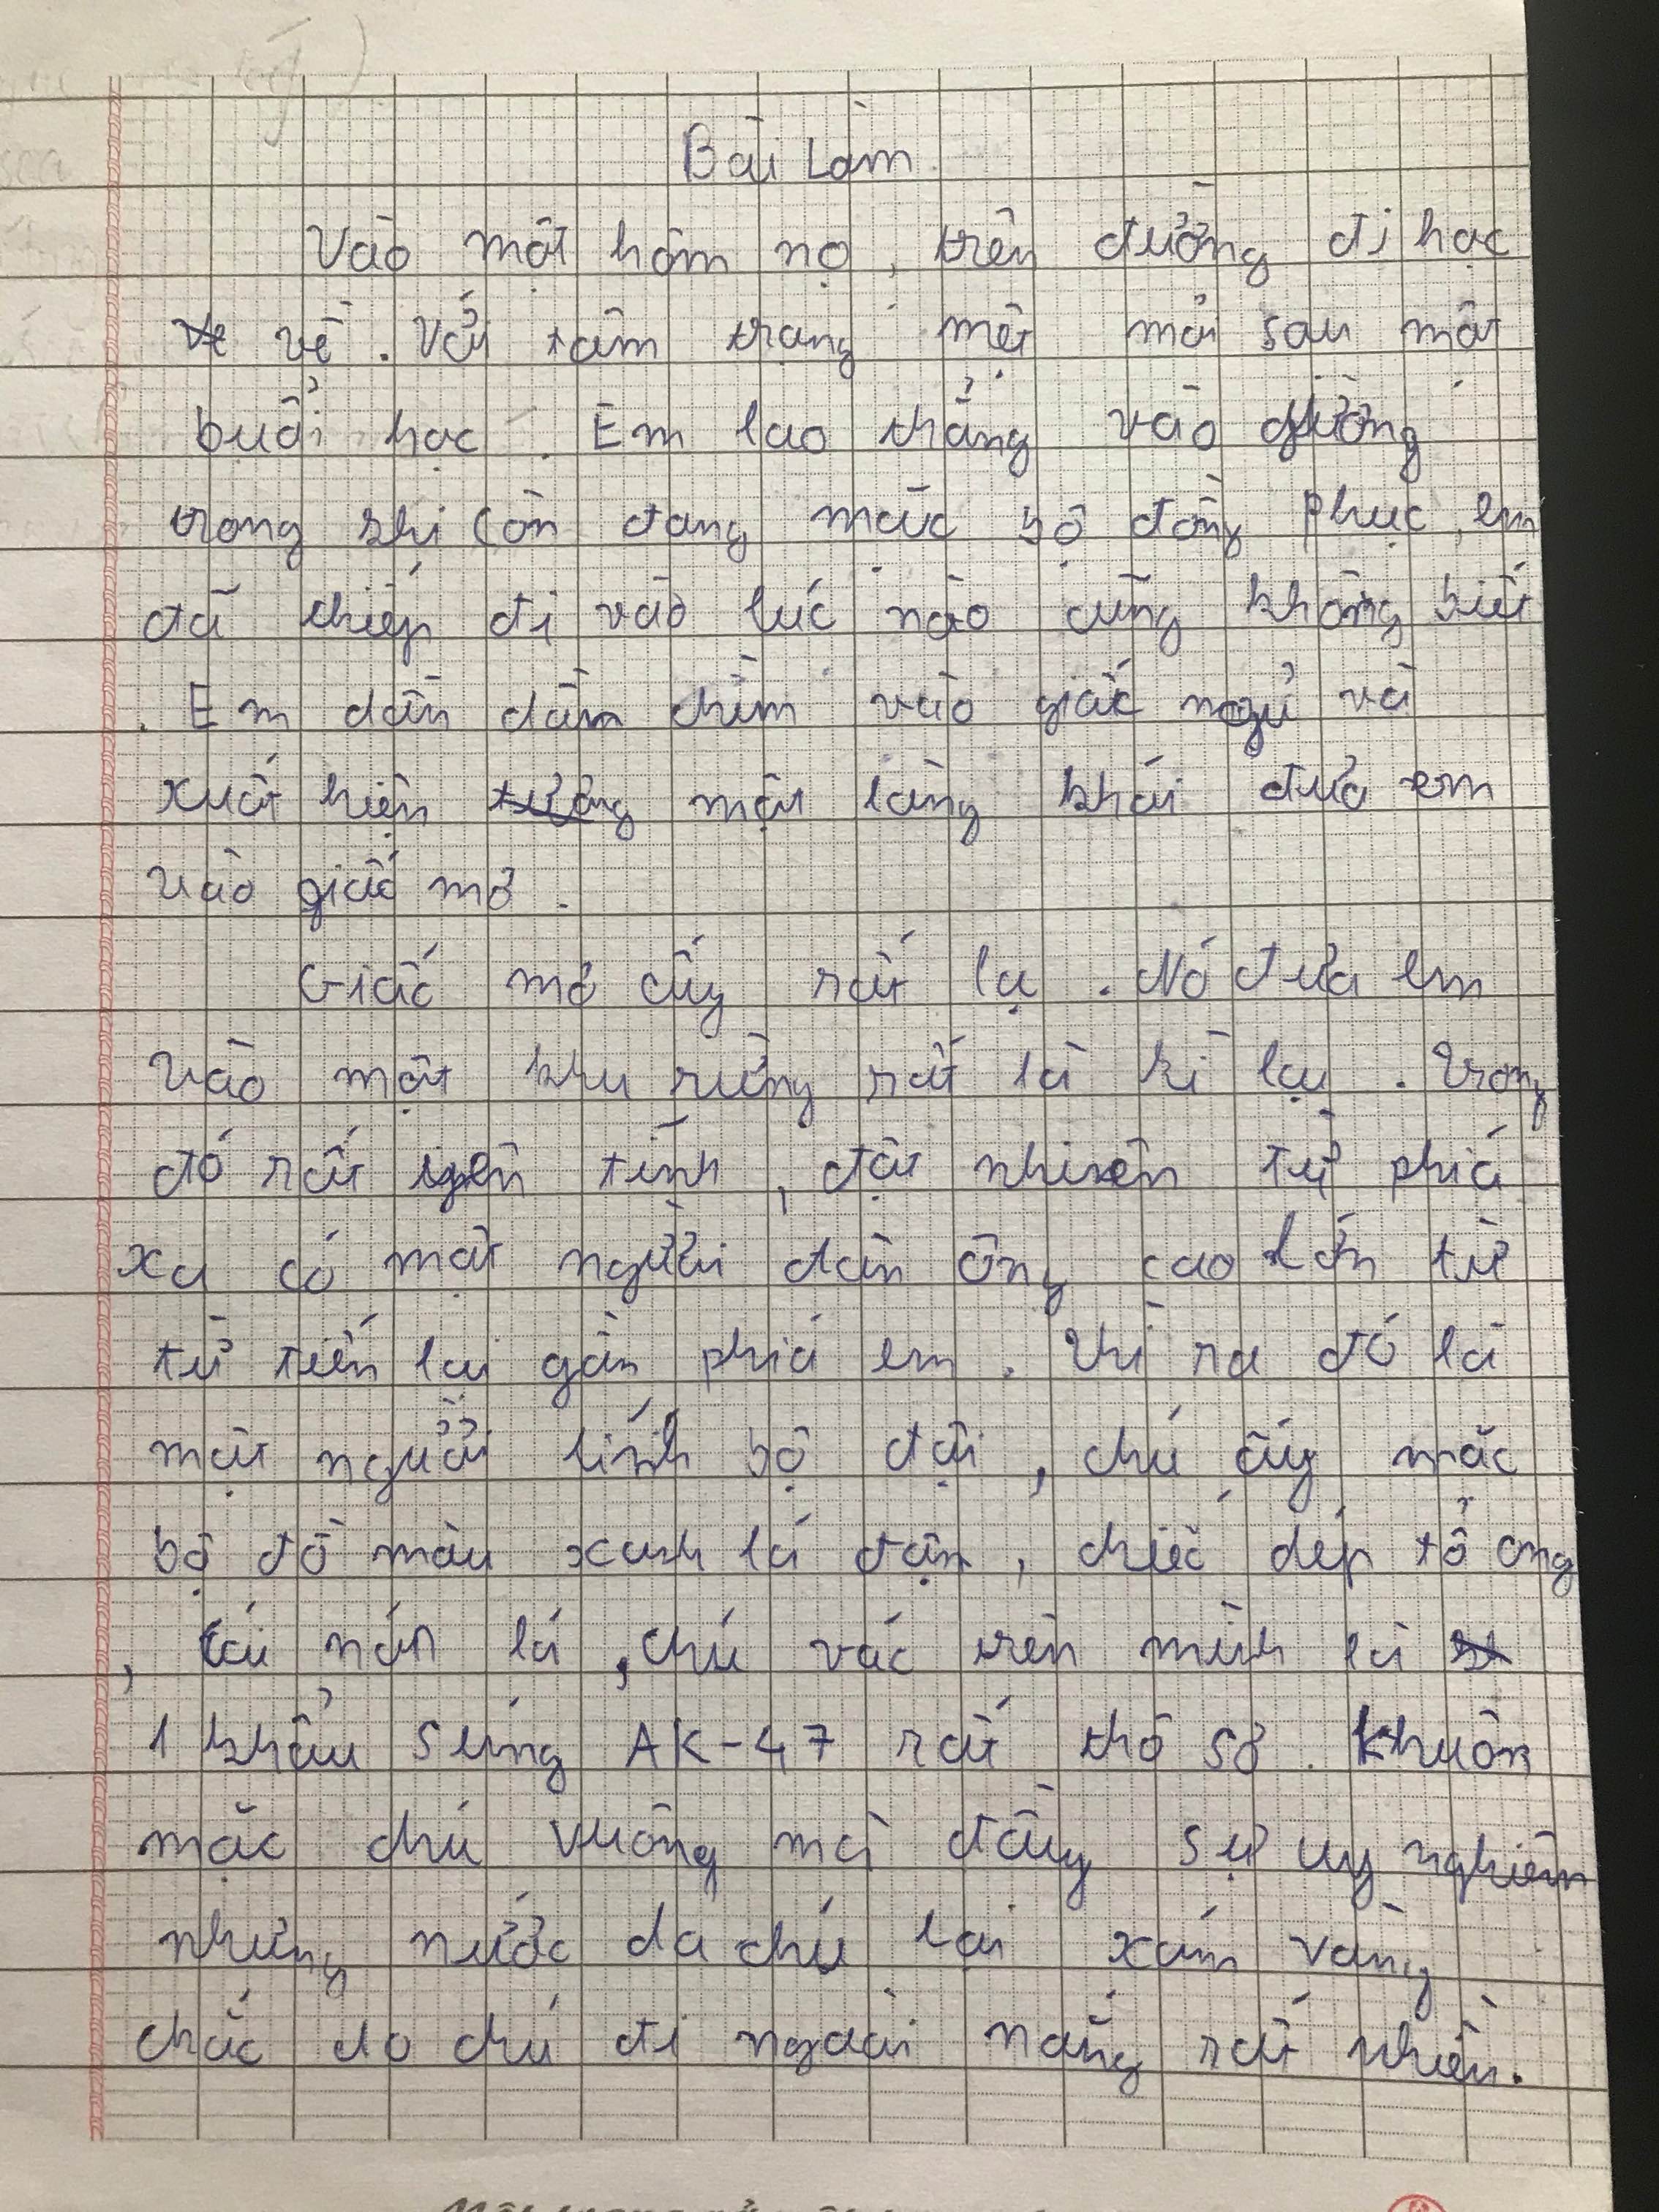 Bài Làm
Vào một hôm nọ, trên đường đi học
về. Với tâm trạng mệt mỏi sau một
buổi học. Em lao thẳng vào giường
trong khi còn đang mặc bộ đồng phục, em
đã thiếp đi vào lúc nào cũng không biết
. Em dần dần chìm vào giấc ngủ và
xuất hiện một làng khói đưa em
vào giấc mơ.
Giấc mơ ấy rất lạ. Nó đưa em
vào một khu rừng rất là kì lạ. Trong
đó rất yên tĩnh, đột nhiên từ phía
xa có một người đàn ông cao lớn từ
từ tiến lại gần phía em. Thì ra đó là
một người lính bộ đội, chú ấy mặc
bộ đồ màu xanh lá đậm, chiếc dép tổ ong
, cái nón lá, chú vác trên mình là
1 khẩu súng AK-47 rất thô sơ. Khuôn
mặc chú vuông mà đầy sự uy nghiêm
nhưng nước da chú lại xám vàng
chắc do chú đi ngoài nắng rất nhiều.